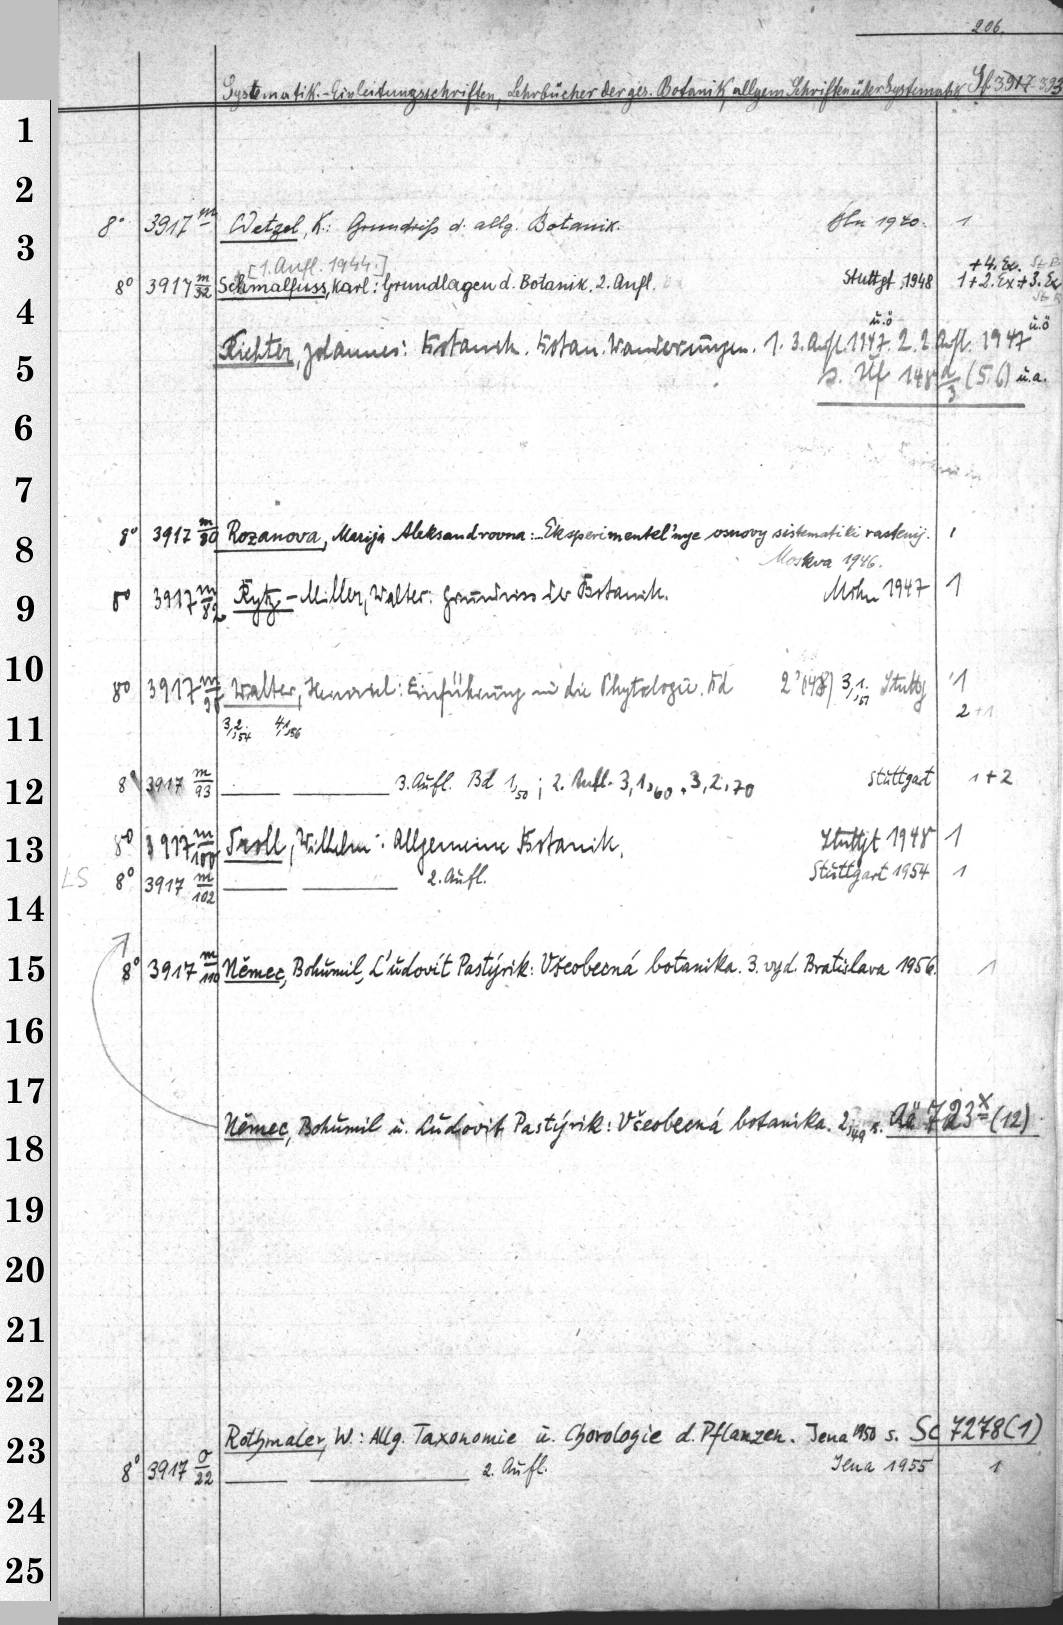 206.
Systematik.-Einleitungsschriften, Lehrbücher der ges. Botanik, allgem. Schriften über Systematik Sf 3917-393
1
2
8° 3917 m Wetzel, K.: Grundriß d. allg. Botanik. Bln 1940. 1
3
[1. Aufl. 1944.] +4. Ex.
8° 3917 m/32 Schmalfuss, Karl: Grundlagen d. Botanik. 2. Aufl. Stuttgt. 1948 1+2. Ex+3. Ex
4
ü.ö ü.ö
Richter, Johannes: Botanik. Botan. Wanderungen. 1. 3. Aufl. 1947. 2. 2. Aufl. 1947
5
s. Üf 148 d/3 (5.6) u.a.
6
7
8° 3917 m/80 Rozanova, Marija Aleksandrovna: Eksperimentel'nye osnovy sistematiki rastenij. 1
8
Moskva 1946.
8° 3917 m/82 Rytz-Miller, Walter: Grundriss der Botanik. Mchn 1947 1
9
10
8° 3917 m Walter, Heinrich: Einführung in die Phytologie. Bd 2 (1948) 3,1. 51 Stuttg 1
3,2. 54 4,1. 56 2 +1
11
8° 3917 m/93 3. Aufl. Bd 1, 50 ; 2. Aufl. 3,1, 60 . 3,2, 70 Stuttgart 1+2
12
8° 3917 m/100 Troll, Wilhelm: Allgemeine Botanik. Stuttgt 1948 1
13
LS 8° 3917 m/102 2. Aufl. Stuttgart 1954 1
14
8° 3917 m/110 Němec, Bohumil, L'udovít Pastýrik: Všeobecná botanika. 3. vyd. Bratislava 1956. 1
15
16
17
Němec, Bohumil u. Ľudovit Pastýrik: Všeobecná botanika. 2, 49 s. Aä 723 x (12)
18
19
20
21
22
Rothmaler, W.: Allg. Taxonomie u. Chorologie d. Pflanzen. Jena 1950 s. Sc 7278(1)
23
8° 3917 o/22 2. Aufl. Jena 1955 1
24
25